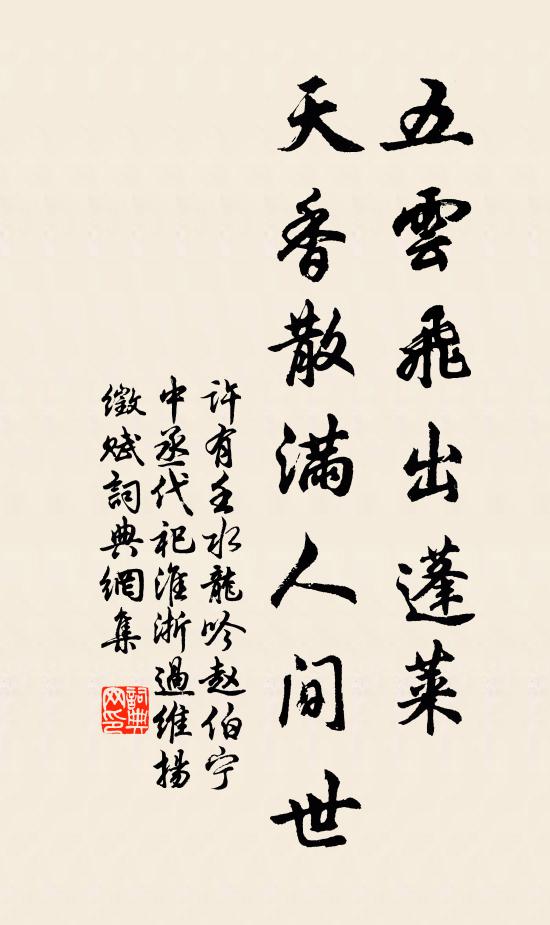 五雲飛出蓬萊
天香散满人间世
許有壬水龍吟赵伯宁
中丞代祀淮浙過維揚
徵赋詞典網集
詞典網印